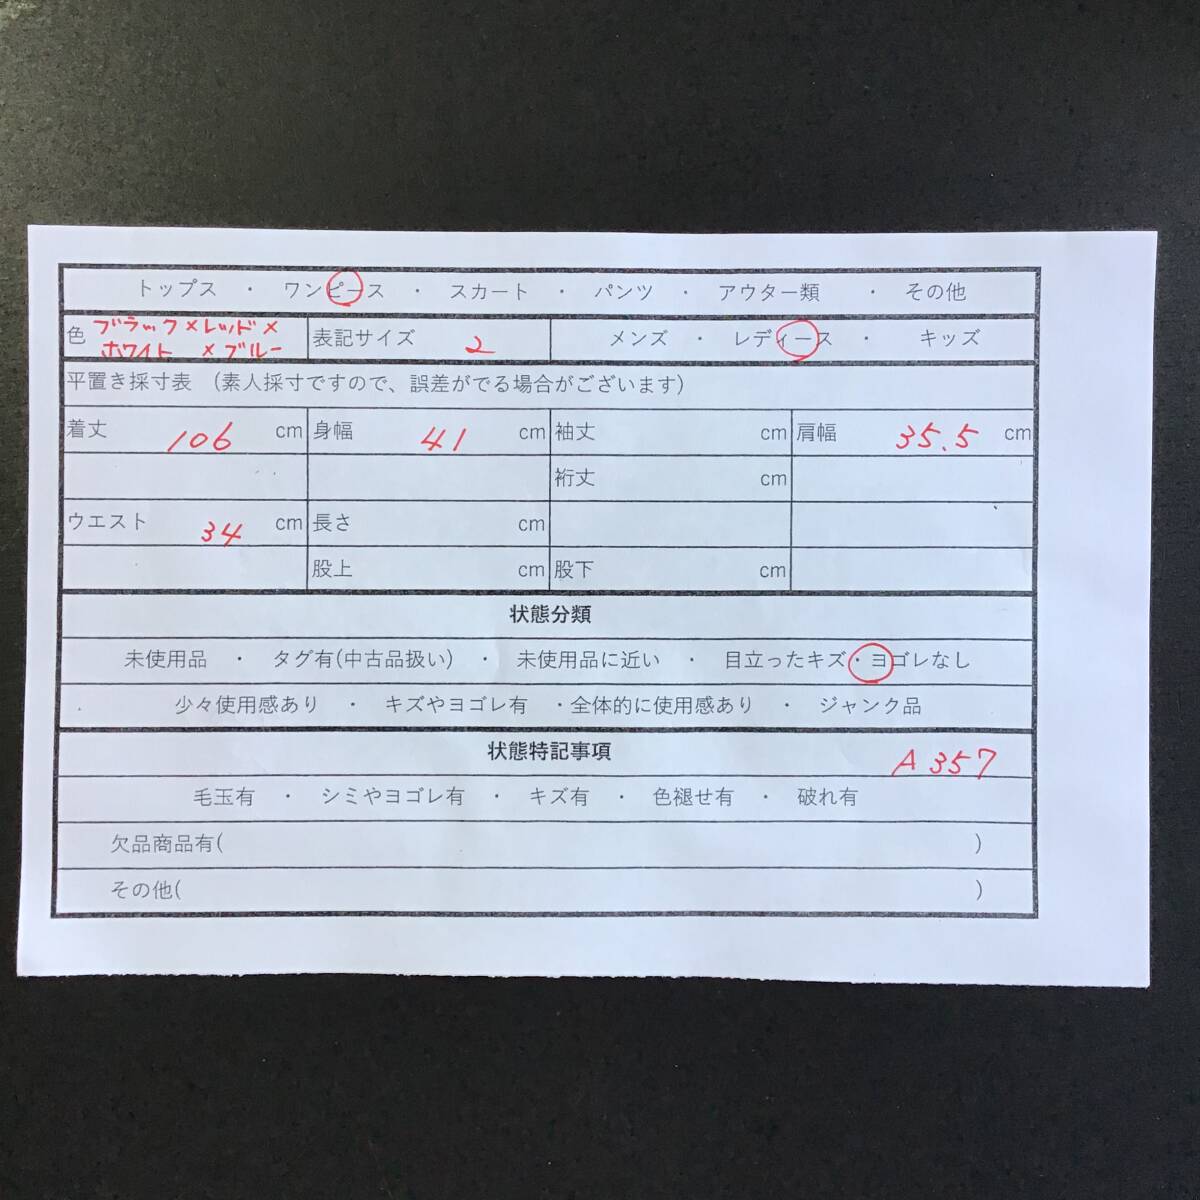 トップス ・ ワンピース ・ スカート ・ パンツ ・ アウター類 ・ その他
色 ブラック×レッド×ホワイト×ブルー 表記サイズ 2 メンズ ・ レディース ・ キッズ
平置き採寸表 (素人採寸ですので、誤差がでる場合がございます)
着丈 106 cm 身幅 41 cm 袖丈 cm 肩幅 35.5 cm
裄丈 cm
ウエスト 34 cm 長さ cm
股上 cm 股下 cm
状態分類
未使用品 ・ タグ有(中古品扱い) ・ 未使用品に近い ・ 目立ったキズ・ヨゴレなし
少々使用感あり ・ キズやヨゴレ有 ・全体的に使用感あり ・ ジャンク品
状態特記事項 A357
毛玉有 ・ シミやヨゴレ有 ・ キズ有 ・ 色褪せ有 ・ 破れ有
欠品商品有( )
その他( )